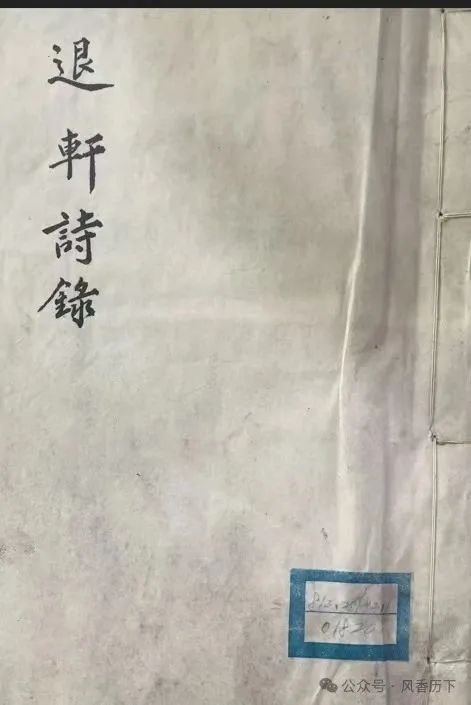 退軒詩錄
0182
公众号·风香历下